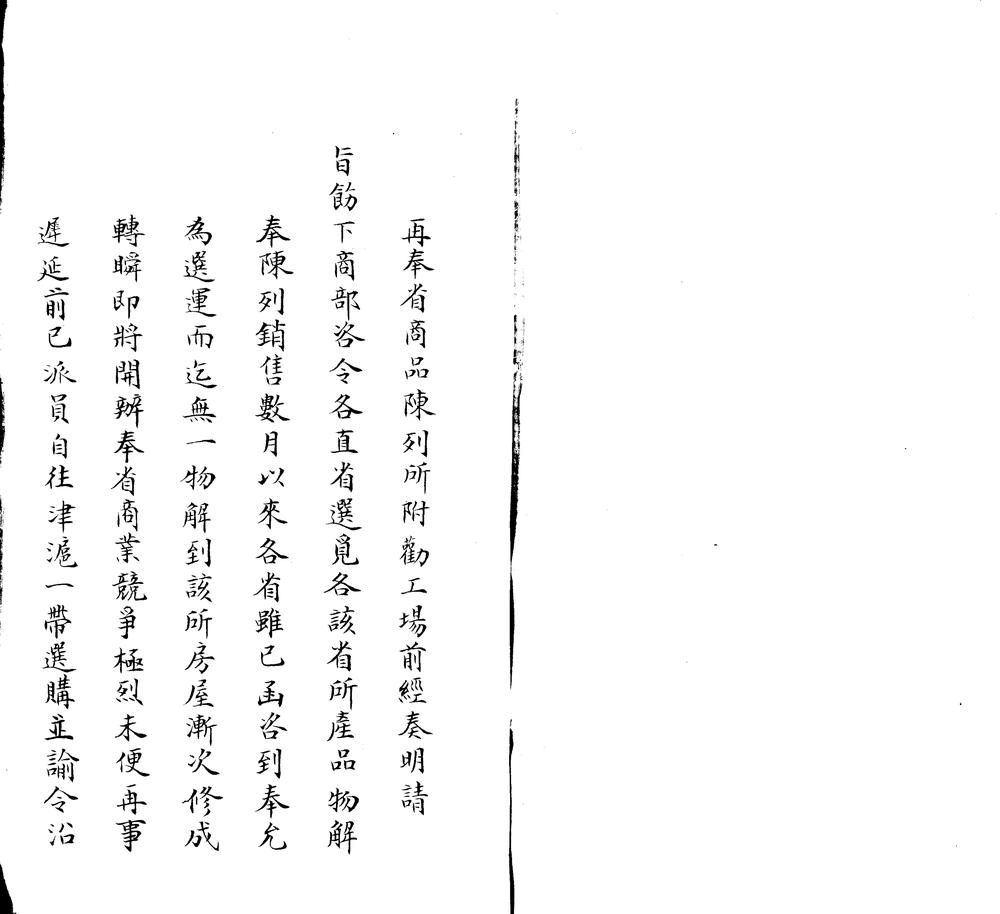 再奉省商品陳列所附勸工場前經奏明請
旨飭下商部咨令各直省選覓各該省所產品物解
奉陳列銷售數月以來各省雖已函咨到奉允
為選運而迄無一物解到該所房屋漸次修成
轉瞬即將開辦奉省商業競爭極烈未便再事
遲延前已派員自往津滬一帶選購並諭令沿